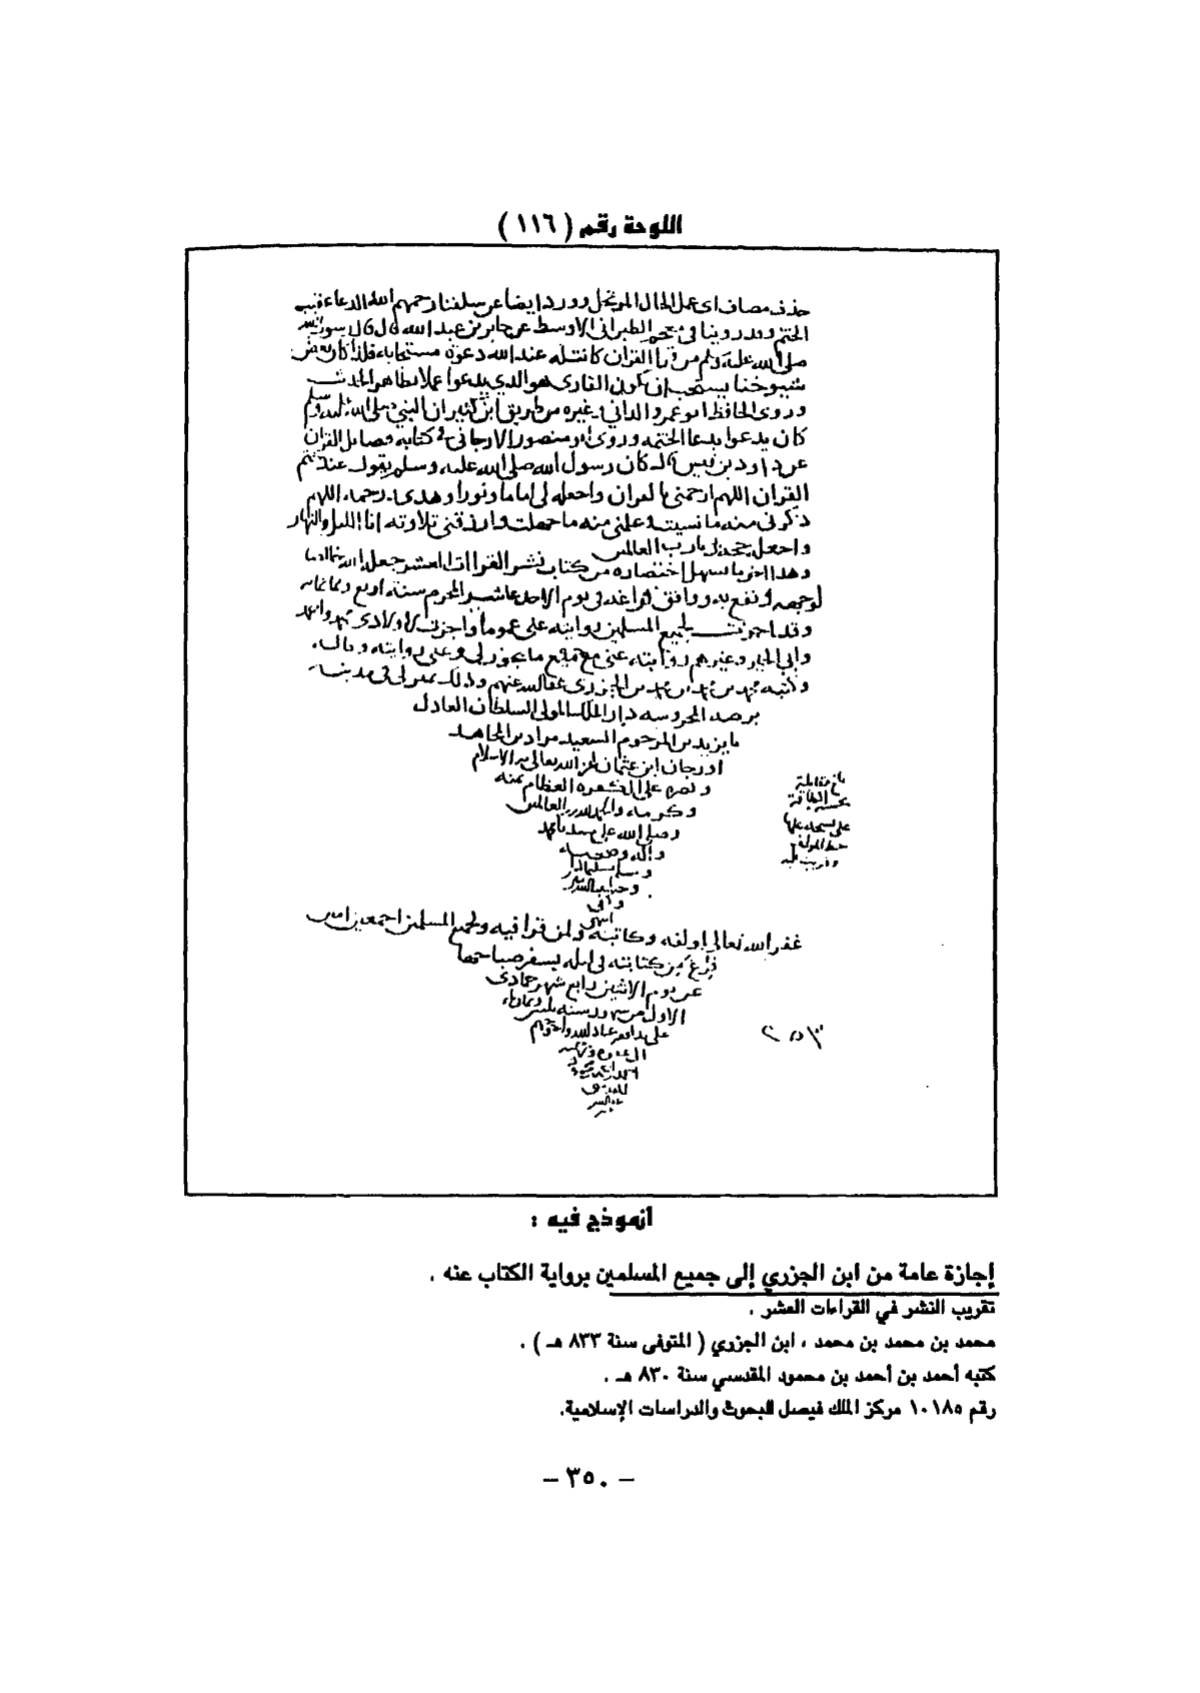 اللوحة رقم ( ١١٦ )
حذف مضاف اى عمل الحال المرتحل وورد ايضا عن سلفنا رحمهم الله الدعاء عقيب
الختم وقد روينا فى معجم الطبرانى الاوسط عن جابر بن عبد الله قال قال رسول الله
صلى الله عليه وسلم من قرا القران كانت له عند الله دعوة مستجابة فلذا كان بعض
شيوخنا يستحب ان يكون القارى هو الذي يدعوا عملا بظاهر الحديث
وروى الحافظ ابو عمرو الداني وغيره من طريق ابن كثير ان النبي صلى الله عليه وسلم
كان يدعوا بدعا الختمه وروى ابو منصور الارجانى فى كتابه فضايل القران
عن داود بن قيس قال كان رسول الله صلى الله عليه وسلم يقول عند ختم
القران اللهم ارحمنى بالقران واجعله لى اماما ونورا وهدى ورحمة اللهم
ذكرنى منه ما نسيت وعلمنى منه ما جهلت وارزقنى تلاوته اناا الليل والنهار
واجعله حجة لى يا رب العالمين
وهذا اخر ما سهل اختصاره من كتاب نشر القراات العشر جعله الله خالصا
لوجهه ونفع به ووافق فراغه فى يوم الاحد عاشر المحرم سنة اربع وثمانمايه
وقد اجزت لجميع المسلمين روايته عنى عموما واجزت لاولادى
وابي الخير وغيرهم روايته عنى مع جميع ما يجوز لى وعنى روايته وقال
وكتبه محمد بن محمد بن محمد بن الجزرى عفا الله عنهم وذلك بمنزلى فى مدينة
برصه المحروسه دار الملك المولى السلطان العادل
بايزيد بن المرحوم السعيد مراد بن المجاهد
اورجان ابن عثمان الله تعالى به الاسلام
ونصره على الكفره العظام بمنه
وكرمه والحمد لله رب العالمين
وصلى الله على سيدنا محمد
واله وصحبه
وسلم تسليما
وحسبنا الله
غفر الله تعالى لمولفه وكاتبه ولمن قرا فيه ولجميع المسلمين اجمعين امين
فرغ من كتابته فى ليله يسفر صباحها
عن يوم الاثنين رابع شهر جمادى
الاول من شهور سنه ثلثين وثمانمايه
على يد افقر عباد الله واحوجهم
بلغ مقابلة
بحسب الطاقة
على نسخة عليها
خط المولف
أنموذج فيه :
إجازة عامة من ابن الجزري إلى جميع المسلمين برواية الكتاب عنه .
تقريب النشر في القراءات العشر .
محمد بن محمد بن محمد ، ابن الجزري ( المتوفى سنة ٨٣٣ هـ ) .
كتبه أحمد بن أحمد بن محمود المقدسي سنة ٨٣٠ هـ .
رقم ١٠١٨٥ مركز الملك فيصل للبحوث والدراسات الإسلامية.
– ٣٥٠ –